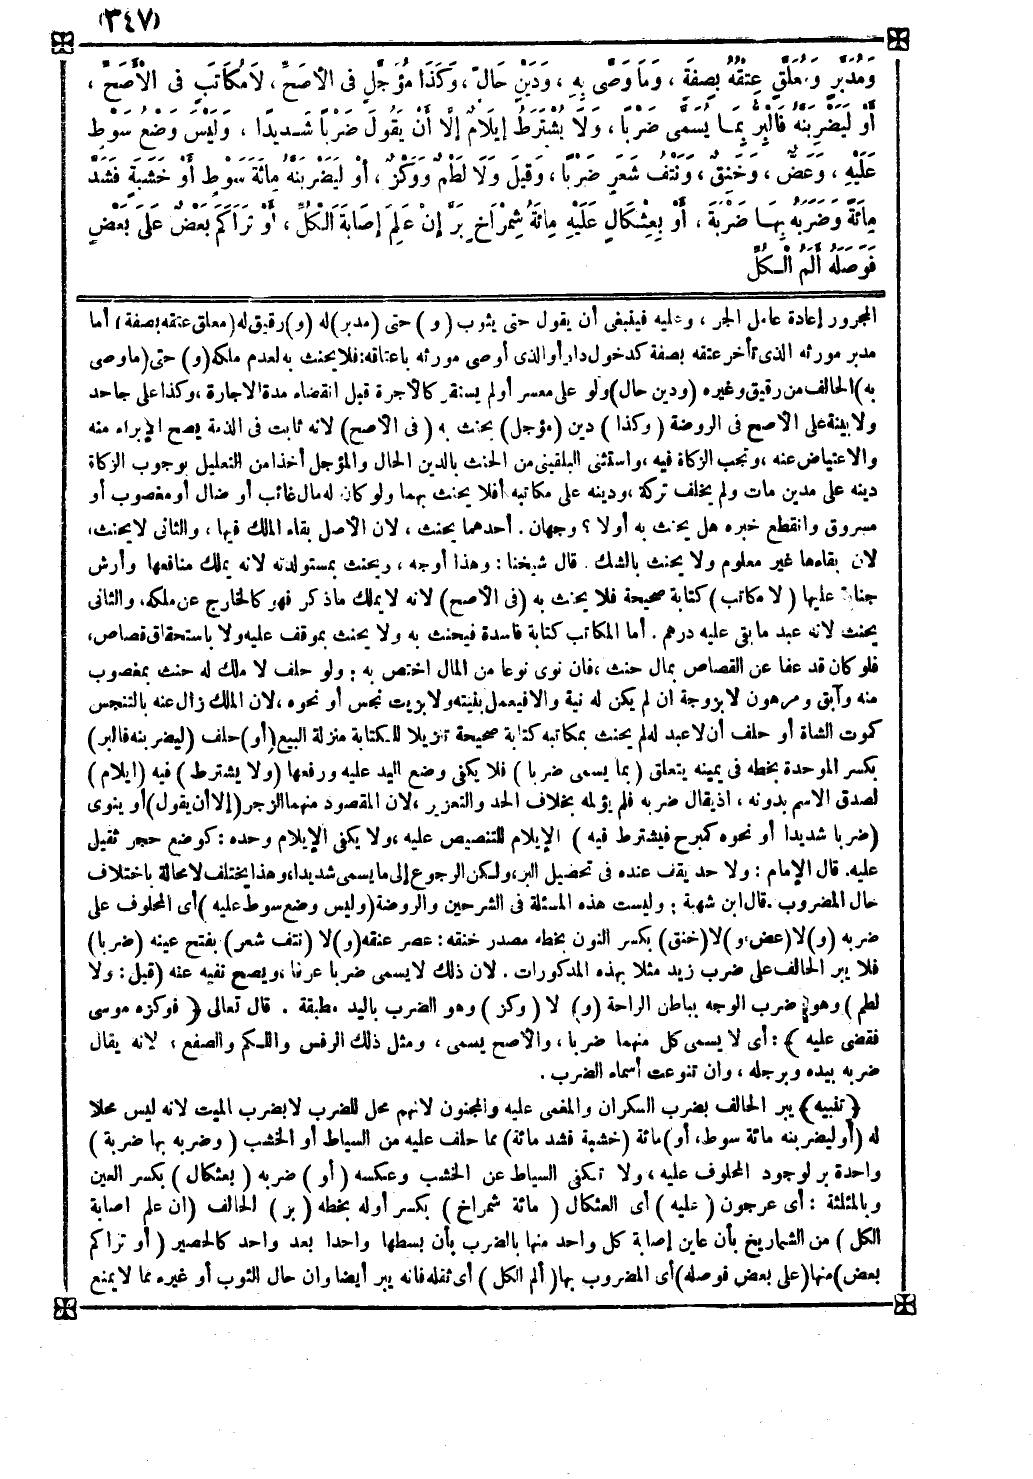 (٣٤٧)
وَمُدَبَّرٍ وَمُعَلَّقٍ عِتْقُهُ بِصِفَةٍ ، وَمَا وَصَّى بِهِ ، وَدَيْنٍ حَالٍّ ، وَكَذَا مُؤَجَّلٍ فِى الْأَصَحِّ ، لَامُكَاتَبٍ فِى الْأَصَحِّ ،
أَوْ لَيَضْرِبَنَّهُ فَالْبِرُّ بِمَا يُسَمَّى ضَرْبًا ، وَلَا يُشْتَرَطُ إيلَامٌ إلَّا أَنْ يَقُولَ ضَرْبًا شَدِيدًا ، وَلَيْسَ وَضْعُ سَوْطٍ
عَلَيْهِ ، وَعَضٌّ ، وَخَنِقٌ ، وَنَتْفُ شَعَرٍ ضَرْبًا ، وَقِيلَ وَلَا لَطْمٌ وَوَكْزٌ ، أَوْ لَيَضْرِبَنَّهُ مِائَةَ سَوْطٍ أَوْ خَشَبَةٍ فَشَدَّ
مِائَةً وَضَرَبَهُ بِهَا ضَرْبَةً ، أَوْ بِعِثْكَالٍ عَلَيْهِ مِائَةُ شِمْرَاخٍ بَرَّ إنْ عَلِمَ إصَابَةَ الْكُلِّ ، أَوْ تَرَاكَمَ بَعْضٌ عَلَى بَعْضٍ
فَوَصَلَهُ أَلَمُ الْكُلِّ
المجرور إعادة عامل الجر ، وعليه فينبغى أن يقول حتى يثوب (و) حتى (مدبر) له (و) رقيق له (معلق عتقه بصفة) أما
مدبر مورثه الذى تأخر عتقه بصفة كدخول دار أوالذى أوصى مورثه باعتاقه: فلايحنث به لعدم ملكه (و) حتى (ماوصى
به) الحالف من رقيق وغيره (ودين حال) ولو على معسر أولم يستقر كالأجرة قبل انقضاء مدة الاجارة ، وكذا على جاحد
ولابينة على الأصح فى الروضة (وكذا) دين (مؤجل) يحنث به (فى الأصح) لانه ثابت فى الذمة يصح الإبراء منه
والاعتياض عنه ، وتجب الزكاة فيه ، واستثنى البلقينى من الحنث بالدين الحال والمؤجل أخذا من التعليل بوجوب الزكاة
دينه على مدين مات ولم يخلف تركة ، ودينه على مكاتبه أفلا يحنث بهما ولو كان له مال غائب أو ضال أومغصوب أو
مسروق وانقطع خبره هل يحنث به أولا ؟ وجهان . أحدهما يحنث ، لان الأصل بقاء الملك فيها ، والثانى لايحنث،
لان بقاءها غير معلوم ولا يحنث بالشك . قال شيخنا : وهذا أوجه ، ويحنث بمستولدته لانه يملك منافعها وأرش
جناية عليها (لا مكاتب) كتابة صحيحة فلا يحنث به (فى الأصح) لانه لايملك ماذكر فهو كالخارج عن ملكه، والثانى
يحنث لانه عبد مابقى عليه درهم . أما المكاتب كتابة فاسدة فيحنث به ولا يحنث بموقف عليه ولا باستحقاق قصاص،
فلو كان قد عفا عن القصاص بمال حنث ، فان نوى نوعا من المال اختص به : ولو حلف لا ملك له حنث بمغصوب
منه وآبق ومرهون لابزوجة ان لم يكن له نية والا فيعمل بنيته ولابزيت نجس أو نحوه ، لان الملك زال عنه بالتنجس
كموت الشاة أو حلف أن لاعبد له لم يحنث بمكاتبه كتابة صحيحة تنزيلا للكتابة منزلة البيع (أو) حلف (ليضربنه فالبر)
بكسر الموحدة بخطه فى يمينه يتعلق (بما يسمى ضربا) فلا يكفى وضع اليد عليه ورفعها (ولا يشترط) فيه (ايلام)
لصدق الاسم بدونه ، اذيقال ضربه فلم يؤلمه بخلاف الحد والتعزير ، لان المقصود منهما الزجر (إلا أن يقول) أو ينوى
(ضربا شديدا أو نحوه كمبرح فيشترط فيه) الإيلام للتنصيص عليه ، ولا يكفى الإيلام وحده : كوضع حجر ثقيل
عليه. قال الإمام : ولا حد يقف عنده فى تحصيل البر، ولكن الرجوع إلى مايسمى شديدا، وهذا يختلف لامحالة باختلاف
حال المضروب . قال ابن شهبة : وليست هذه المسئلة فى الشرحين والروضة (وليس وضع سوط عليه) أى المحلوف على
ضربه (و) لا (عض، و) لا (خنق) بكسر النون بخطه مصدر خنقه : عصر عنقه (و) لا (نتف شعر) بفتح عينه (ضربا)
فلا يبر الحالف على ضرب زيد مثلا بهذه المذكورات . لان ذلك لايسمى ضربا عرفا ، ويصح نفيه عنه (قيل : ولا
لطم) وهو ضرب الوجه بباطن الراحة (و) لا (وكز) وهو الضرب باليد مطبقة . قال تعالى ﴿ فوكزه موسى
فقضى عليه ﴾ : أى لا يسمى كل منهما ضربا ، والأصح يسمى ، ومثل ذلك الرفس واللكم والصفع ، لانه يقال
ضربه بيده وبرجله ، وان تنوعت أسماء الضرب .
﴿تنبيه﴾ يبر الحالف بضرب السكران والمغمى عليه والمجنون لانهم محل للضرب لابضرب الميت لانه ليس محلا
له (أوليضربنه مائة سوط، أو) مائة (خشبة فشد مائة) مما حلف عليه من السياط أو الخشب (وضربه بها ضربة)
واحدة بر لوجود المحلوف عليه ، ولا تكفى السياط عن الخشب وعكسه (أو) ضربه (بعثكال) بكسر العين
وبالمثلثة : أى عرجون (عليه) أى العثكال (مائة شمراخ) بكسر أوله بخطه (بر) الحالف (ان علم اصابة
الكل) من الشماريخ بأن عاين إصابة كل واحد منها بالضرب بأن بسطها واحدا بعد واحد كالحصير (أو تراكم
بعض) منها (على بعض فوصله) أى المضروب بها (ألم الكل) أى ثقله فانه يبر أيضا وان حال الثوب أو غيره مما لايمنع